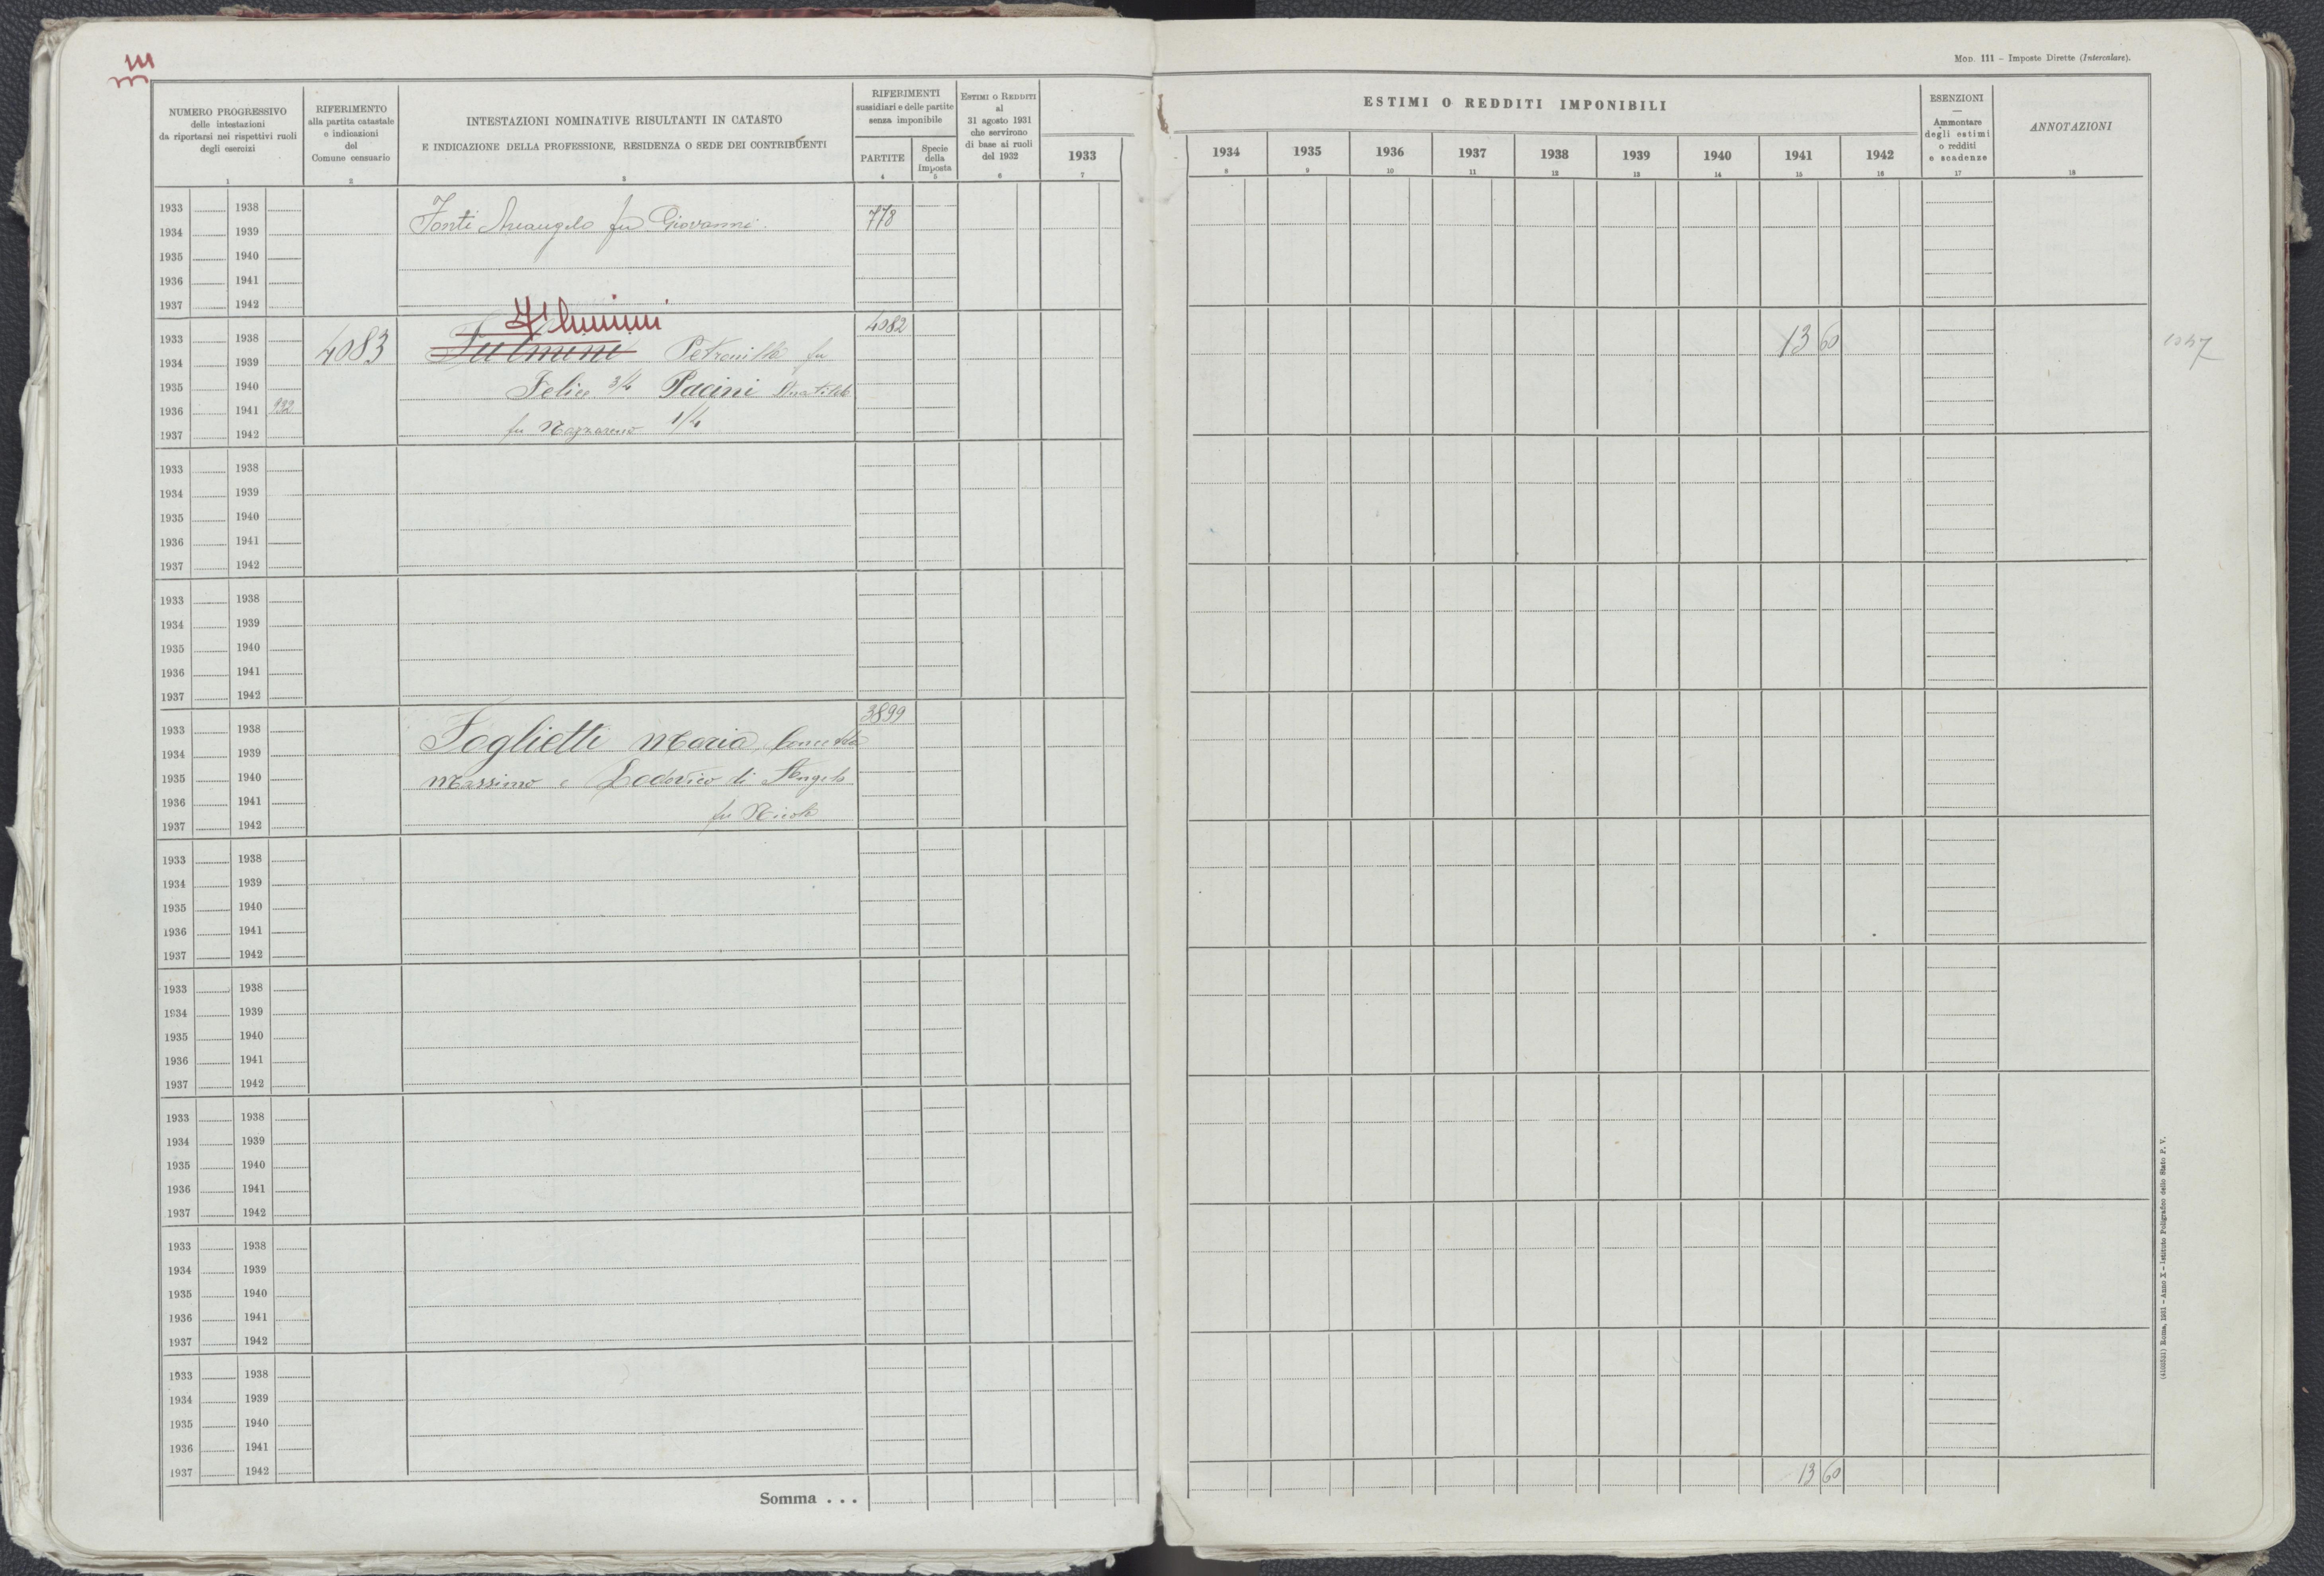 Mod. 111 – Imposte Dirette (Intercalare).
NUMERO PROGRESSIVO
delle intestazioni
da riportarsi nei rispettivi ruoli
degli esercizi
1
RIFERIMENTO
alla partita catastale
e indicazioni
del
Comune censuario
2
INTESTAZIONI NOMINATIVE RISULTANTI IN CATASTO
E INDICAZIONE DELLA PROFESSIONE, RESIDENZA O SEDE DEI CONTRIBUENTI
3
RIFERIMENTI
sussidiari e delle partite
senza imponibile
PARTITE
4
Specie
della
Imposta
5
Estimi o Redditi
al
31 agosto 1931
che servirono
di base ai ruoli
del 1932
6
1933
7
ESTIMI O REDDITI IMPONIBILI
1934 1935 1936 1937 1938 1939 1940 1941 1942
8 9 10 11 12 13 14 15 16
ESENZIONI
—
Ammontare
degli estimi
o redditi
e scadenze
17
ANNOTAZIONI
18
1933 1938
1934 1939 Fonti Arcangelo fu Giovanni 778
1935 1940
1936 1941
1937 1942
1933 1938 4082
1934 1939 4083 Fulmini Petronilla fu 13 60
1935 1940 Felice 3/4 Pacini
1936 1941 932
1937 1942 fu Nazzareno 1/4
1933 1938
1934 1939
1935 1940
1936 1941
1937 1942
1933 1938
1934 1939
1935 1940
1936 1941
1937 1942
1933 1938 3899
1934 1939 Foglietti Maria, Concetta
1935 1940 Massimo e Lodovico di Angelo
1936 1941
1937 1942 fu Nicola
1933 1938
1934 1939
1935 1940
1936 1941
1937 1942
1933 1938
1934 1939
1935 1940
1936 1941
1937 1942
1933 1938
1934 1939
1935 1940
1936 1941
1937 1942
1933 1938
1934 1939
1935 1940
1936 1941
1937 1942
1933 1938
1934 1939
1935 1940
1936 1941
1937 1942
Somma . . . 13 60
Roma, 1931 – Anno X – Istituto Poligrafico dello Stato P. V.